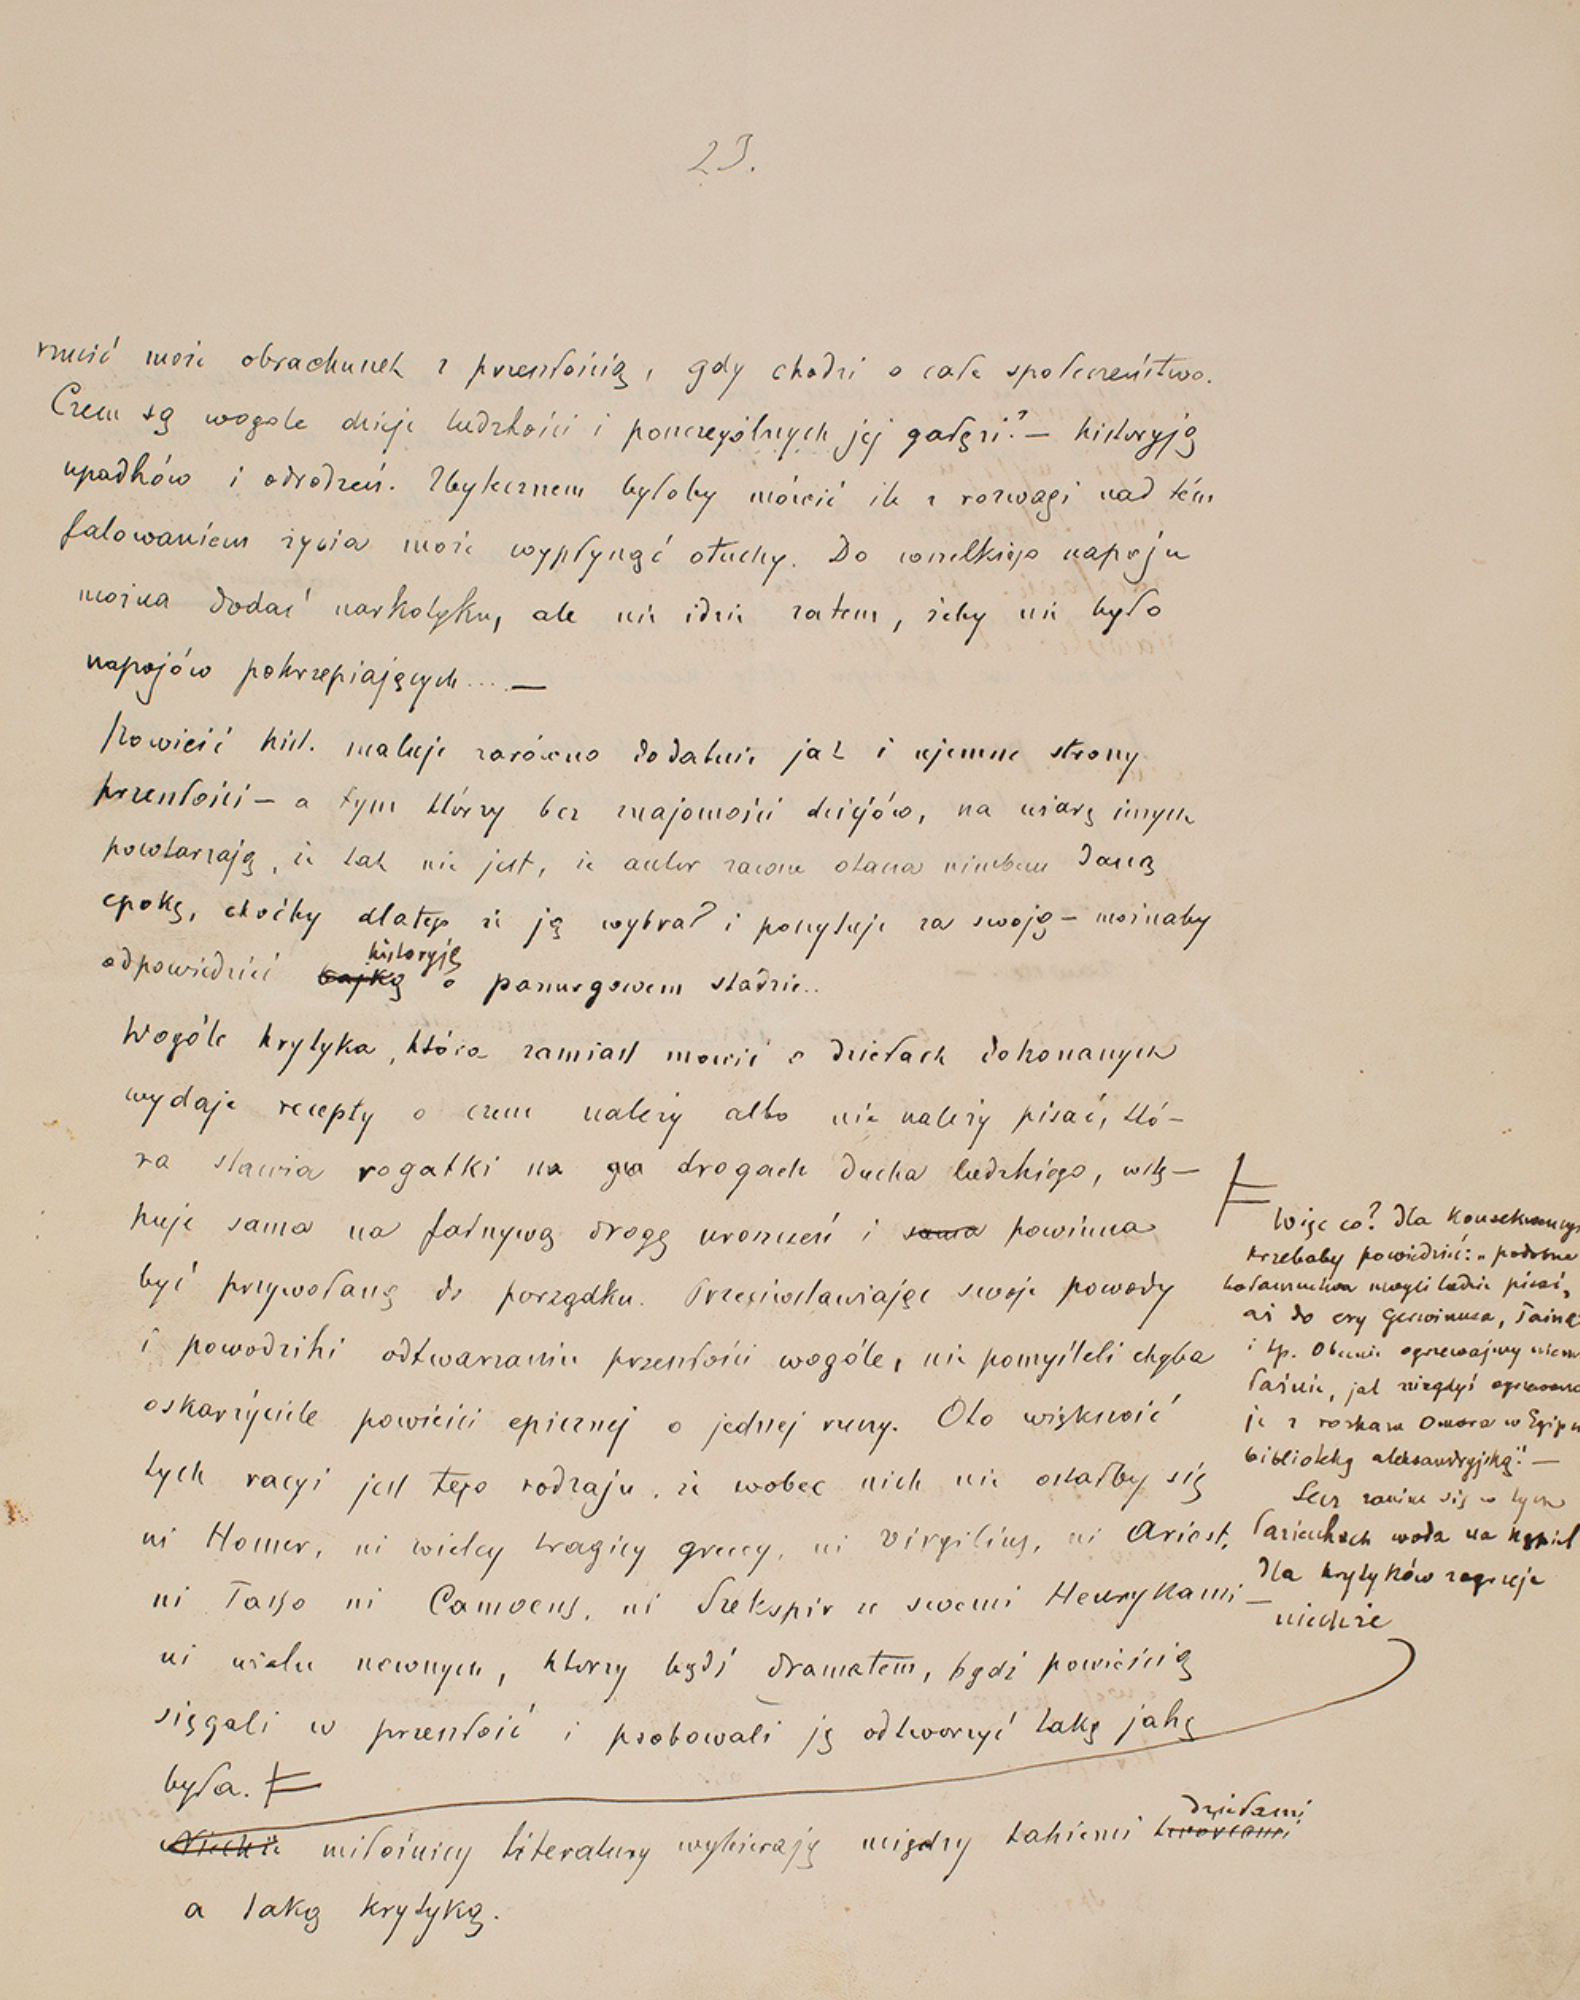 23.
rzucić może obrachunek z przeszłością, gdy chodzi o całe społeczeństwo.
Czem są wogole dzieje ludzkości i poszczególnych jej gałęzi? — historyją
upadków i odrodzeń. Zbytecznem byłoby mówić ile z rozwagi nad tém
falowaniem życia może wypłynąć otuchy. Do wszelkiego napoju
można dodać narkotyku, ale nie idzie zatem, żeby nie było
napojów pokrzepiających.... —
Powieść hist. maluje zarówno dodatnie jak i ujemne strony
przeszłości — a tym którzy bez znajomości dziejów, na wiarę innych
powtarzają, że tak nie jest, że autor zawsze otacza nimbem daną
epokę, choćby dlatego że ją wybrał i poczytuje za swoją — możnaby
odpowiedzieć bajką historyją o panurgowem stadzie..
Wogóle krytyka, która zamiast mowić o dziełach dokonanych
wydaje recepty o czem należy albo nie należy pisać, któ—
ra stawia rogatki na drogach ducha ludzkiego, wstę—
puje sama na fałszywą drogę uroszczeń i sama powinna
być przywołaną do porządku. Przeciwstawiając swoje powody
i powodziki odtwarzaniu przeszłości wogóle, nie pomyśleli chyba
oskarżyciele powieści epicznej o jednej rzeczy. Oto większość
tych racyi jest tego rodzaju, że wobec nich nie ostałby się
ni Homer, ni wielcy tragicy greccy, ni Virgilius, ni Ariost,
ni Tasso ni Camoens, ni Szekspir ze swemi Henrykami —
ni wielu nowszych, którzy bądź dramatem, bądź powieścią
sięgali w przeszłość i probowali ją odtworzyć taką jaką
była.
Niechże miłośnicy literatury wybierają między takiemi tworcami dziełami
a taką krytyką.
Więc co? dla konsekwencyi
trzebaby powiedzieć: „podobne
bałamuctwa mogli ludzie pisać,
aż do ery Gerwinusa, Taine
i tp. Obecnie ogrzewajmy niemi
łaźnie, jak niegdyś ogrzewano
je z rozkazu Omara w Egipcie
biblioteką aleksandryjską". —
Lecz zanim się w tych
łazienkach woda na kąpiel
dla krytyków zagrzeje
niechże